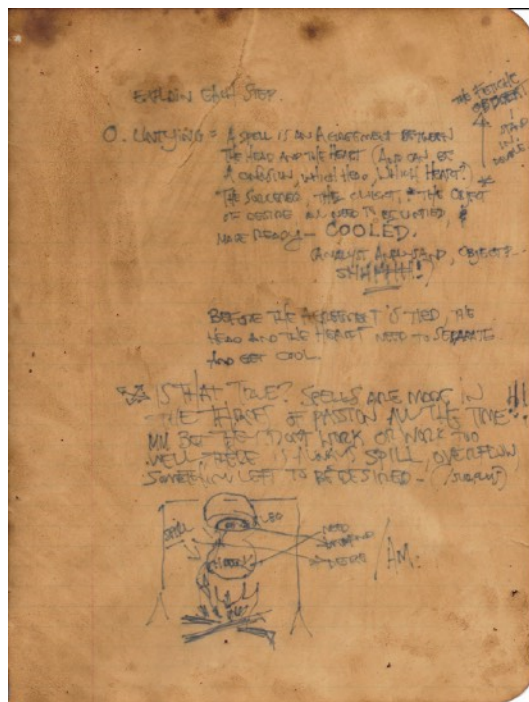 EXPLAIN EACH STEP.
THE FETISHIC
OBJECT!
I
STAND
IN:
0. UNTYING = A SPELL IS AN AGREEMENT BETWEEN
THE HEAD AND THE HEART (AND CAN BE
A CONFUSION, WHICH HEAD, WHICH HEART?)
THE SORCERER, THE CLIENT, & THE OBJECT
OF DESIRE ALL NEED TO BE UNTIED, &
MADE READY— COOLED.
(ANALYST ANALYSAND, OBJECT?...
SHHHHH!)
BEFORE THE AGREEMENT IS TIED, THE
HEAD AND THE HEART NEED TO SEPARATE
AND GET COOL.
IS THAT TRUE? SPELLS ARE MADE IN
THE THROES OF PASSION ALL THE TIME!
BUT THEY DON'T WORK, OR WORK TOO
WELL, THERE IS ALWAYS SPILL, OVERFLOW
SOMETHING LEFT TO BE DESIRED - (SURPLUS)
SPILL
NEED
DEMAND
DESIRE
/AM: